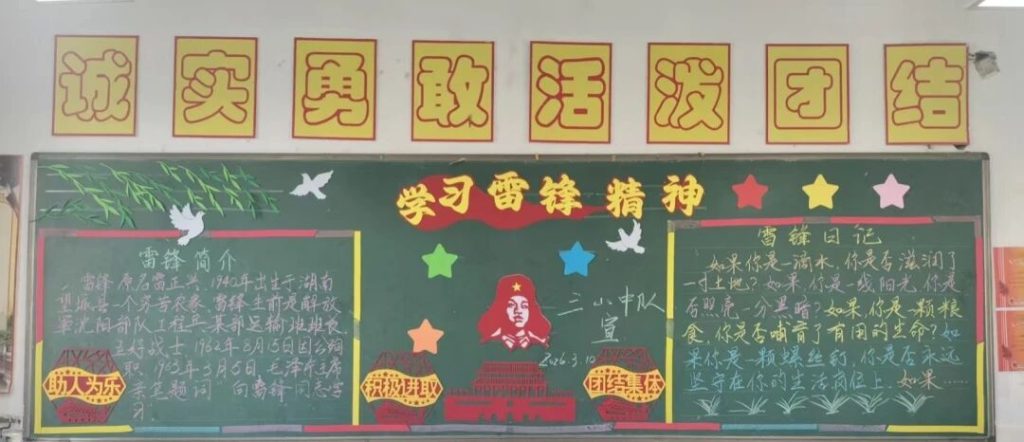 诚实勇敢活泼团结
学习雷锋精神
雷锋简介
雷锋原名雷正兴,1940年出生于湖南
望城县一个穷苦农家.雷锋生前是解放
军沈阳部队工程兵某部运输班班长
五好战士.1962年8月15日因公殉
职.1963年3月5日,毛泽东主席
亲笔题词"向雷锋同志学
习
助人为乐
积极进取
三小中队
宣
2026.3.10
团结集体
雷锋日记
如果你是一滴水,你是否滋润了
一寸土地?如果,你是一线阳光,你是
否照亮一分黑暗?如果,你是一颗粮
食,你是否哺育了有用的生命?如
果你是一颗螺丝钉,你是否永远
坚守在你的生活岗位上.如果……